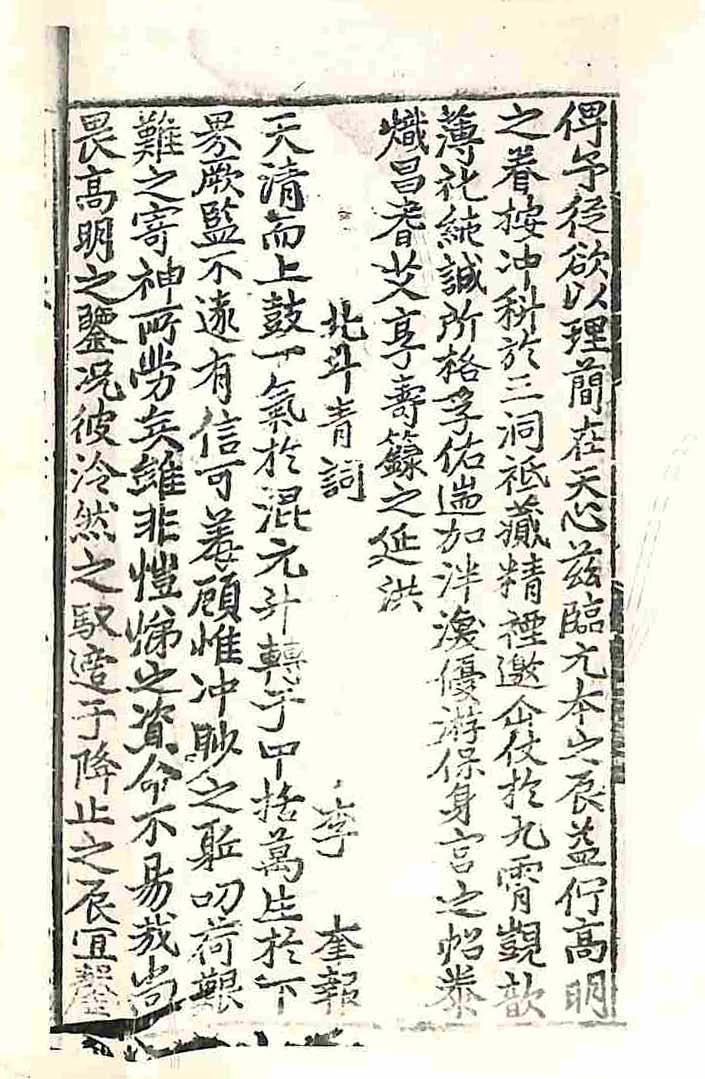 俾予從欲以理簡在天心茲臨元本之辰益佇高明
之眷按冲科於三洞祗薦精禋邀仚仗於九霄覬歆
薄礼純誠所格孚佑遄加泮渙優游保身宮之怡泰
熾昌耆艾享壽籙之延洪
北斗青詞
李 奎報
天清而上鼓一氣於混元斗轉于中括萬生於下
界厥監不遠有信可羞顧惟冲眇之躬叨荷艱
難之寄神所勞矣雖非愷悌之資命不易哉尚
畏高明之鑒况彼泠然之馭適于降止之辰宜罄